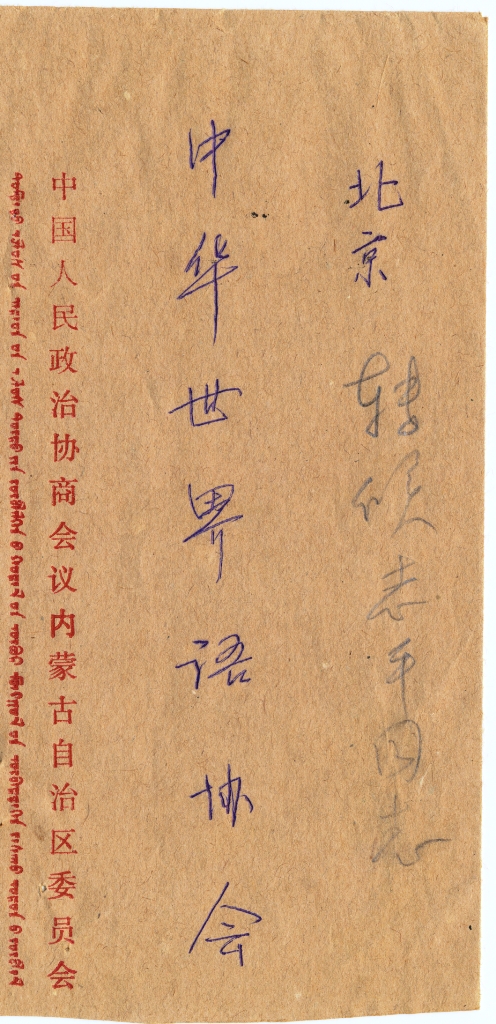 北京 转侯志平同志
中华世界语协会
中国人民政治协商会议内蒙古自治区委员会